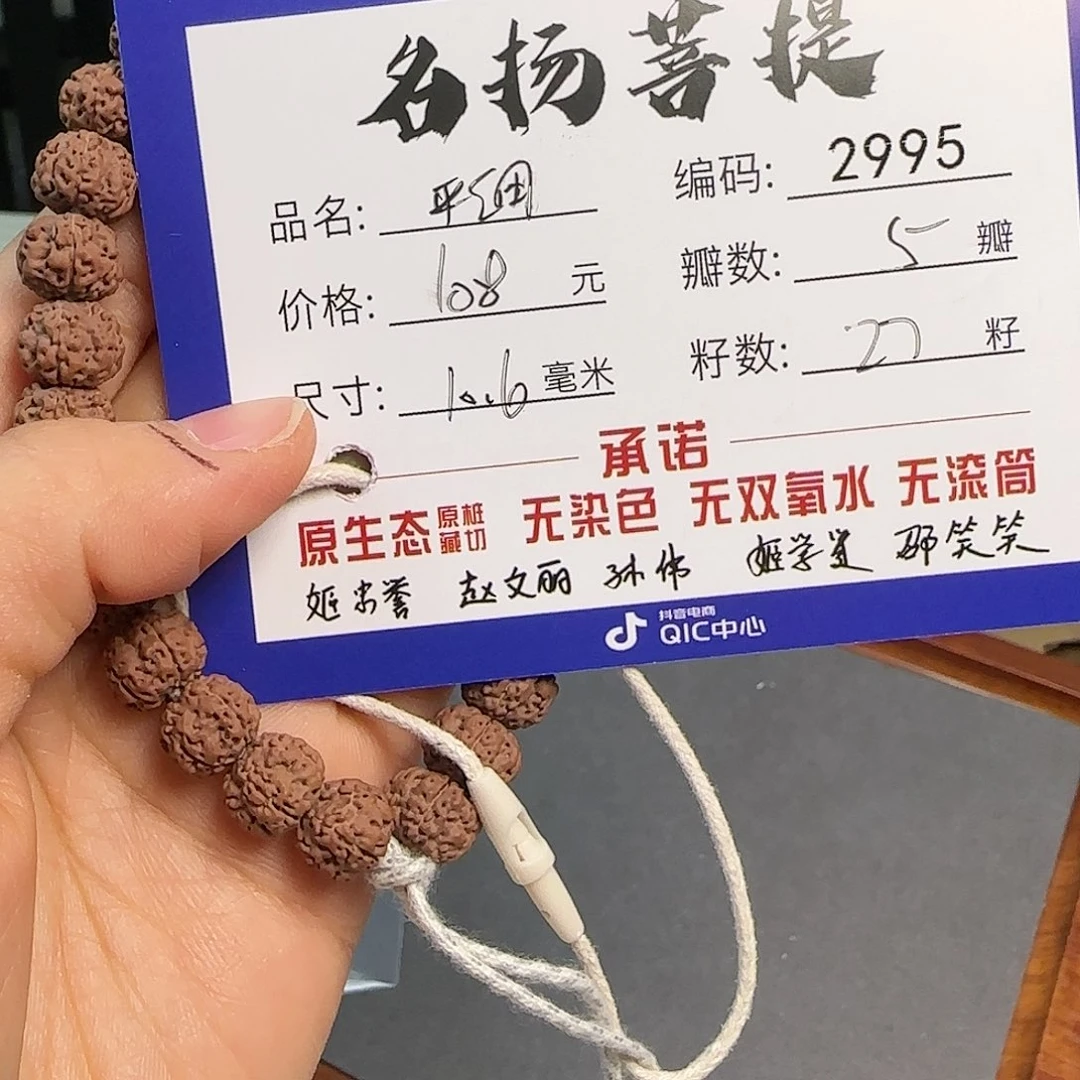 名扬菩提
品名: 平细 编码: 2995
价格: 108 元 瓣数: 5 瓣
尺寸: 10.6 毫米 籽数: 27 籽
承诺
原生态 原桩藏切 无染色 无双氧水 无滚筒
赵文丽 孙伟 邵笑笑
抖音电商
QIC中心